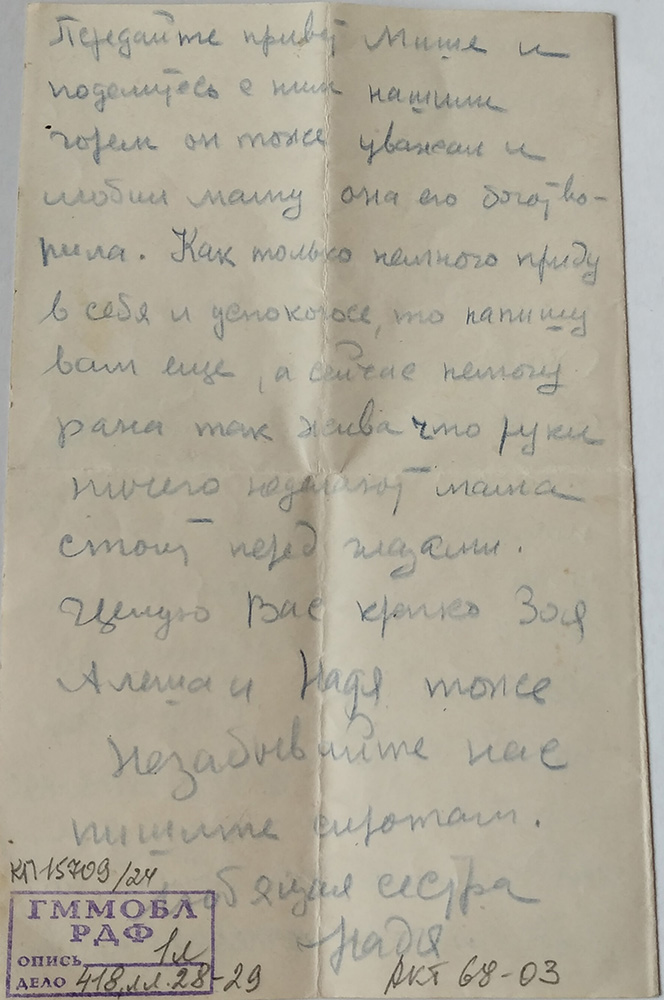 Передайте привет Мише и
поделитесь с ним нашим
горем он тоже уважал и
любил маму она его боготво-
рила. Как только немного приду
в себя и успокоюсь, то напишу
вам еще, а сейчас немогу
рана так жива что руки
ничего неделают мама
стоит перед глазами.
Целую Вас крепко Зоя
Алеша и Надя тоже
Незабывайте нас
пишите сиротам.
любящая сестра
Надя
КП 15709/24
ГММОБЛ
РДФ
ОПИСЬ 1л
ДЕЛО 418, лл. 28-29
Акт 68-03